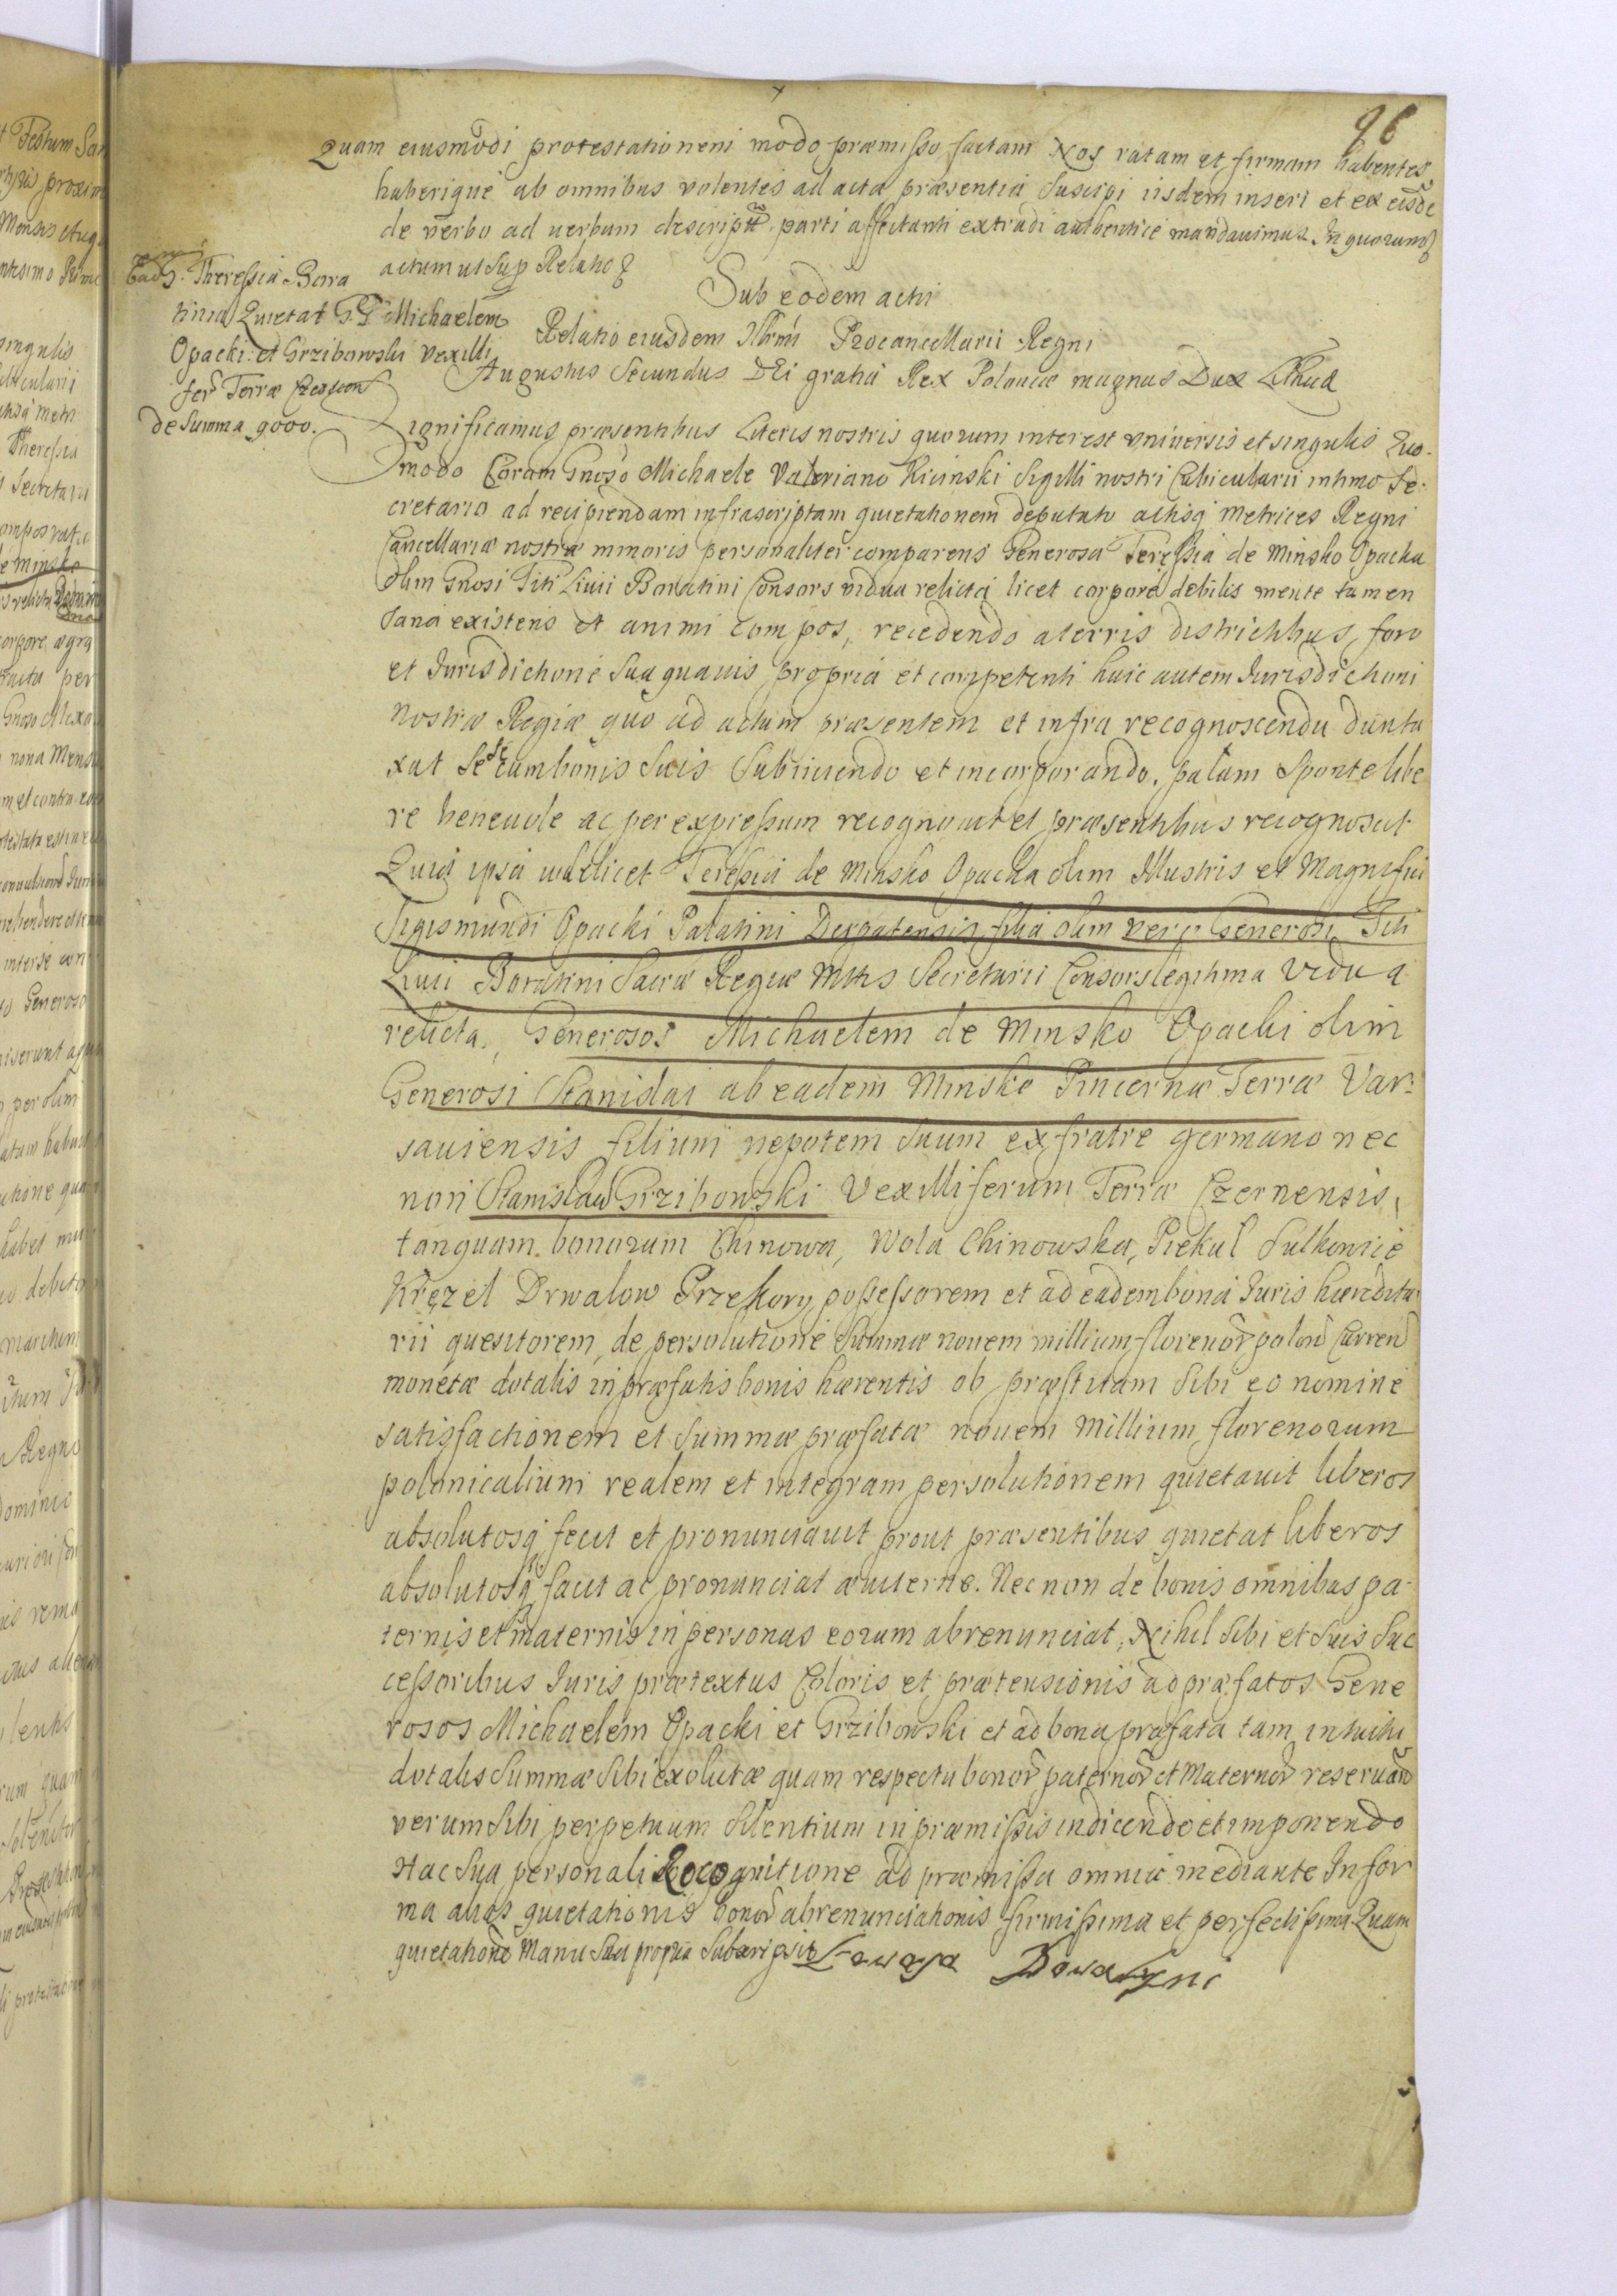 96
Quam eiusmodi protestationem modo præmisso factam Nos ratam et firmam habentes
haberique ab omnibus volentes ad acta præsentia suscipi iisdem inseri et ex eisde
de verbo ad verbum descriptã parti affectanti extradi authentice mandavimus. In quorum
actum ut sup Relatio
Sub eodem actu
Relatio eiusdem Illrmi Procancellarii Regni
Augustus Secundus DEi gratia Rex Poloniæ magnus Dux Lithua
Theressia Bora
tinia Quietat G.G Michaelem
Opacki et Grzibowski vexilli
ferũ Terræ Czernen
de Summa 9000.
Significamus præsentibus Literis nostris quorum interest vniversis et singulis Quo-
modo Coram Gnoso Michaele Valeriano Kicinski Sigilli nostri Cubiculario intimo Se-
cretario ad recipiendam infrascriptam quietationem deputato actisq Metrices Regni
Cancellariæ nostræ minoris personaliter comparens Generosa Teressia de Minsko Opacka
olim Gnosi Titi Liuii Boratini Consors vidua relicta licet corpore debilis mente tamen
sana existens et animi compos, recedendo a terris districtibus, foro
et Iurisdictione sua quauis propria et competenti huic autem Iurisdictioni
nostræ Regiæ quo ad actum præsentem et infra recognoscendu dunta
xat Se se cum bonis suis Subiiciendo et incorporando, palam sponte libe
re beneuole ac per expressum recognouit et præsentibus recognoscit
Quia ipsa videlicet Teressia de Minsko Opacka olim Illustris et Magnifici
Sigismundi Opacki Palatini Derpatensis filia olim vero Generosi Titi
Liuii Boratini Sacræ Regiæ Mttis Secretarii Consors legitima Vidua
relicta, Generosos Michaelem de Minsko Opacki olim
Generosi Stanislai ab eadem Minsko Pincernæ Terræ Var-
sauiensis filium nepotem suum ex fratre germano nec
non Stanislaũ Grzibowski Vexilliferum Terræ Czernensis,
tanquam bonorum Chinowa, Wola Chinowska, Piekul Sulkowice
Kręzel Drwalow Przekory possessorem et ad eadem bona Iuris hæredita
rii quesitorem, de persolutione Summæ nouem millium florenor polon Curren
monetæ dotalis in præfatis bonis hærentis ob præstitam Sibi eo nomine
satisfactionem et Summæ præfatæ nouem Millium florenorum
polonicalium realem et integram persolutionem quietauit liberos
absolutosq fecit et pronunciauit prout præsentibus quietat liberos
absolutosq facit ac pronunciat æuiterne. Nec non de bonis omnibus pa-
ternis et maternis in personas eorum abrenunciat, Nihil Sibi et Suis Suc
cessoribus Iuris prætextus Coloris et prætensionis ad præfatos Gene
rosos Michaelem Opacki et Grzibowski et ad bona præfata tam intuitu
dotalis Summæ Sibi exolutæ quam respectu bonor paternor et Maternor reseruãdo
verum Sibi perpetuum Silentium in præmissis indicendo et imponendo
Hac Sua personali Recognitione ad præmissa omnia mediante In for
ma quietationis bonor abrenunciationis firmissima et perfectissima Quam
quietatione Manu Sua propria Subscripsit